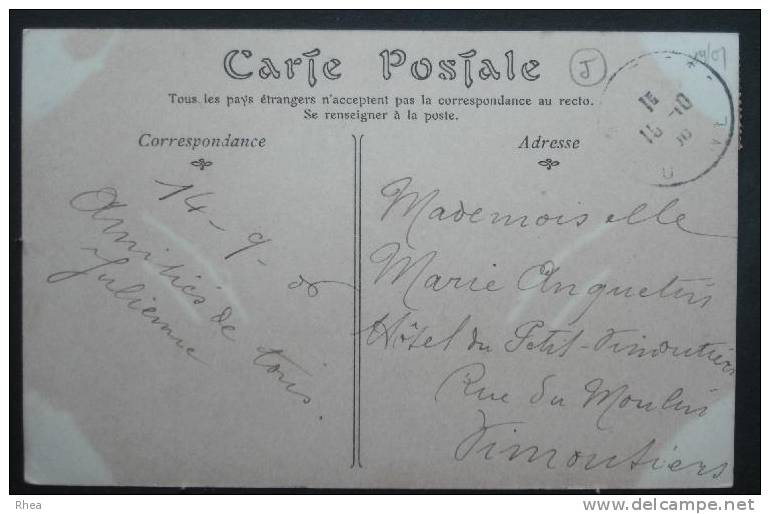 Carte Postale
J
Tous les pays étrangers n'acceptent pas la correspondance au recto.
Se renseigner à la poste.
Correspondance
Adresse
14-9-08
Amitiés de tous.
Julienne
Mademoiselle
Marie Anquetin
Hôtel du Petit-Vimoutiers
Rue du Moulin
Vimoutiers
Rhea
www.delcampe.net